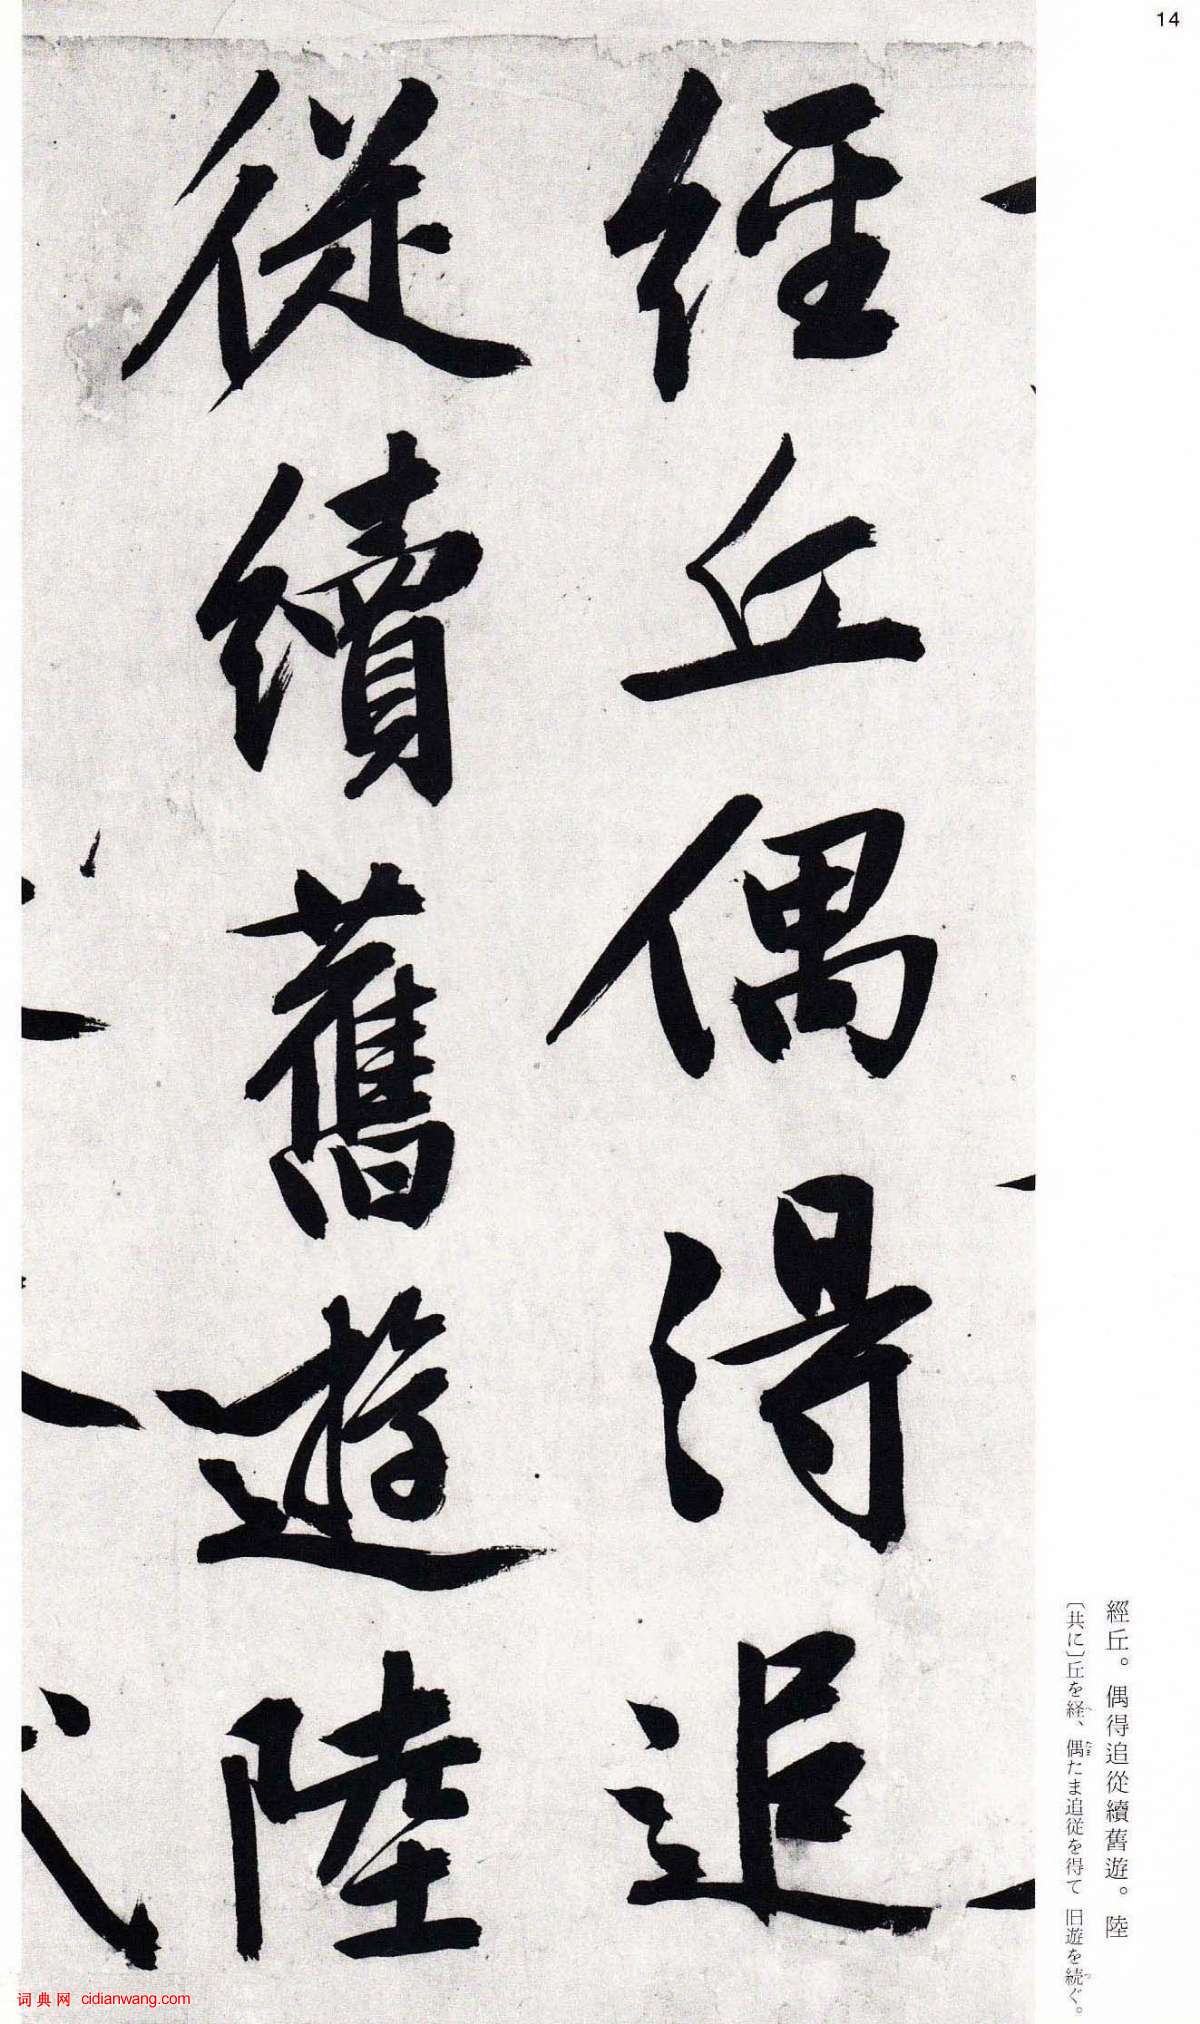 14
經丘偶得追
從續舊遊陸
經丘。偶得追從續舊遊。陸
〔共に〕丘を経、偶たま追従を得て 旧遊を続ぐ。
词典网 cidianwang.com